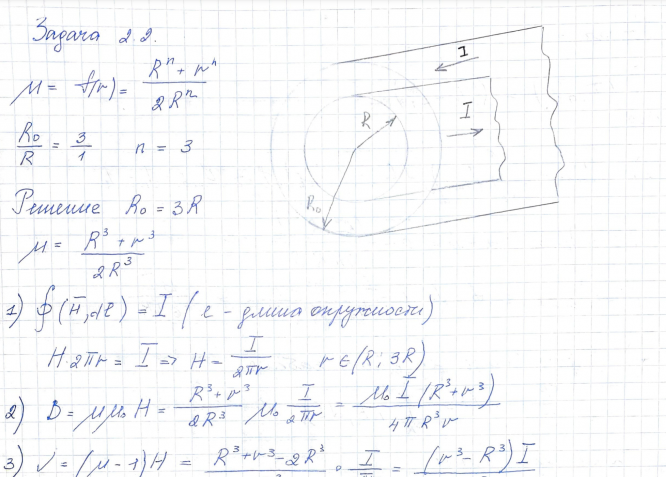 Задача 2.2.
μ = f(r) = (R^n + r^n) / (2R^n)
R₀/R = 3/1   n = 3
Решение R₀ = 3R
μ = (R³ + r³) / (2R³)
1) ∮(H̄, dl̄) = I (l - длина окружности)
H·2πr = I ⇒ H = I/(2πr)   r ∈ (R; 3R)
2) B = μμ₀H = (R³ + r³)/(2R³) μ₀ I/(2πr) = μ₀I(R³ + r³)/(4πR³r)
3) J = (μ - 1)H = R³ + r³ - 2R³ · I = (r³ - R³)I
I
I
R
R₀